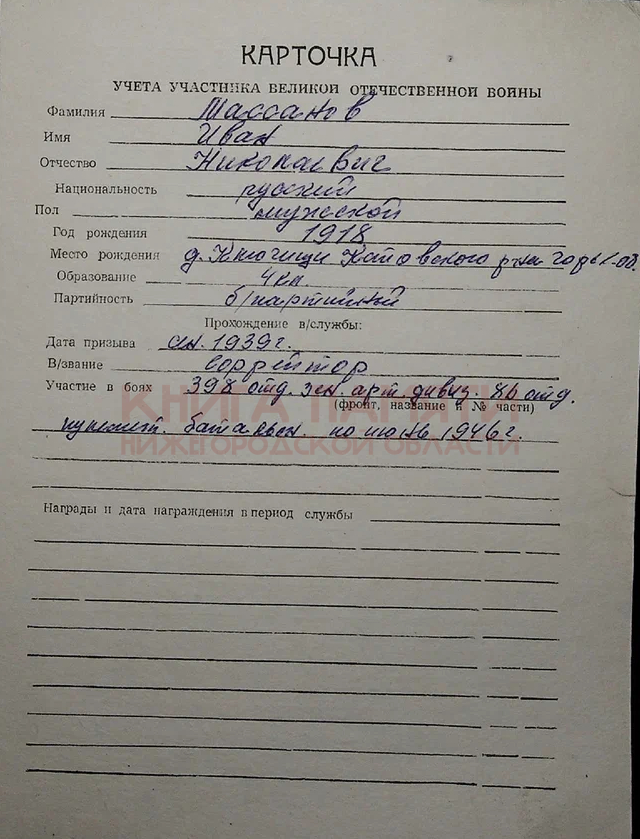 КАРТОЧКА
УЧЕТА УЧАСТНИКА ВЕЛИКОЙ ОТЕЧЕСТВЕННОЙ ВОЙНЫ
Фамилия Массанов
Имя Иван
Отчество Николаевич
Национальность русский
Пол мужской
Год рождения 1918
Место рождения д. Ключищи Катовского р-на Горьк. об.
Образование 4 кл
Партийность б/партийный
Прохождение в/службы:
Дата призыва 1939 г.
В/звание ефрейтор
Участие в боях 398 отд. зен. арт. дивиз. 86 отд.
(фронт, название и № части)
пулемет. батальон. по июль 1946 г.
КНИГА ПАМЯТИ
НИЖЕГОРОДСКОЙ ОБЛАСТИ
Награды и дата награждения в период службы